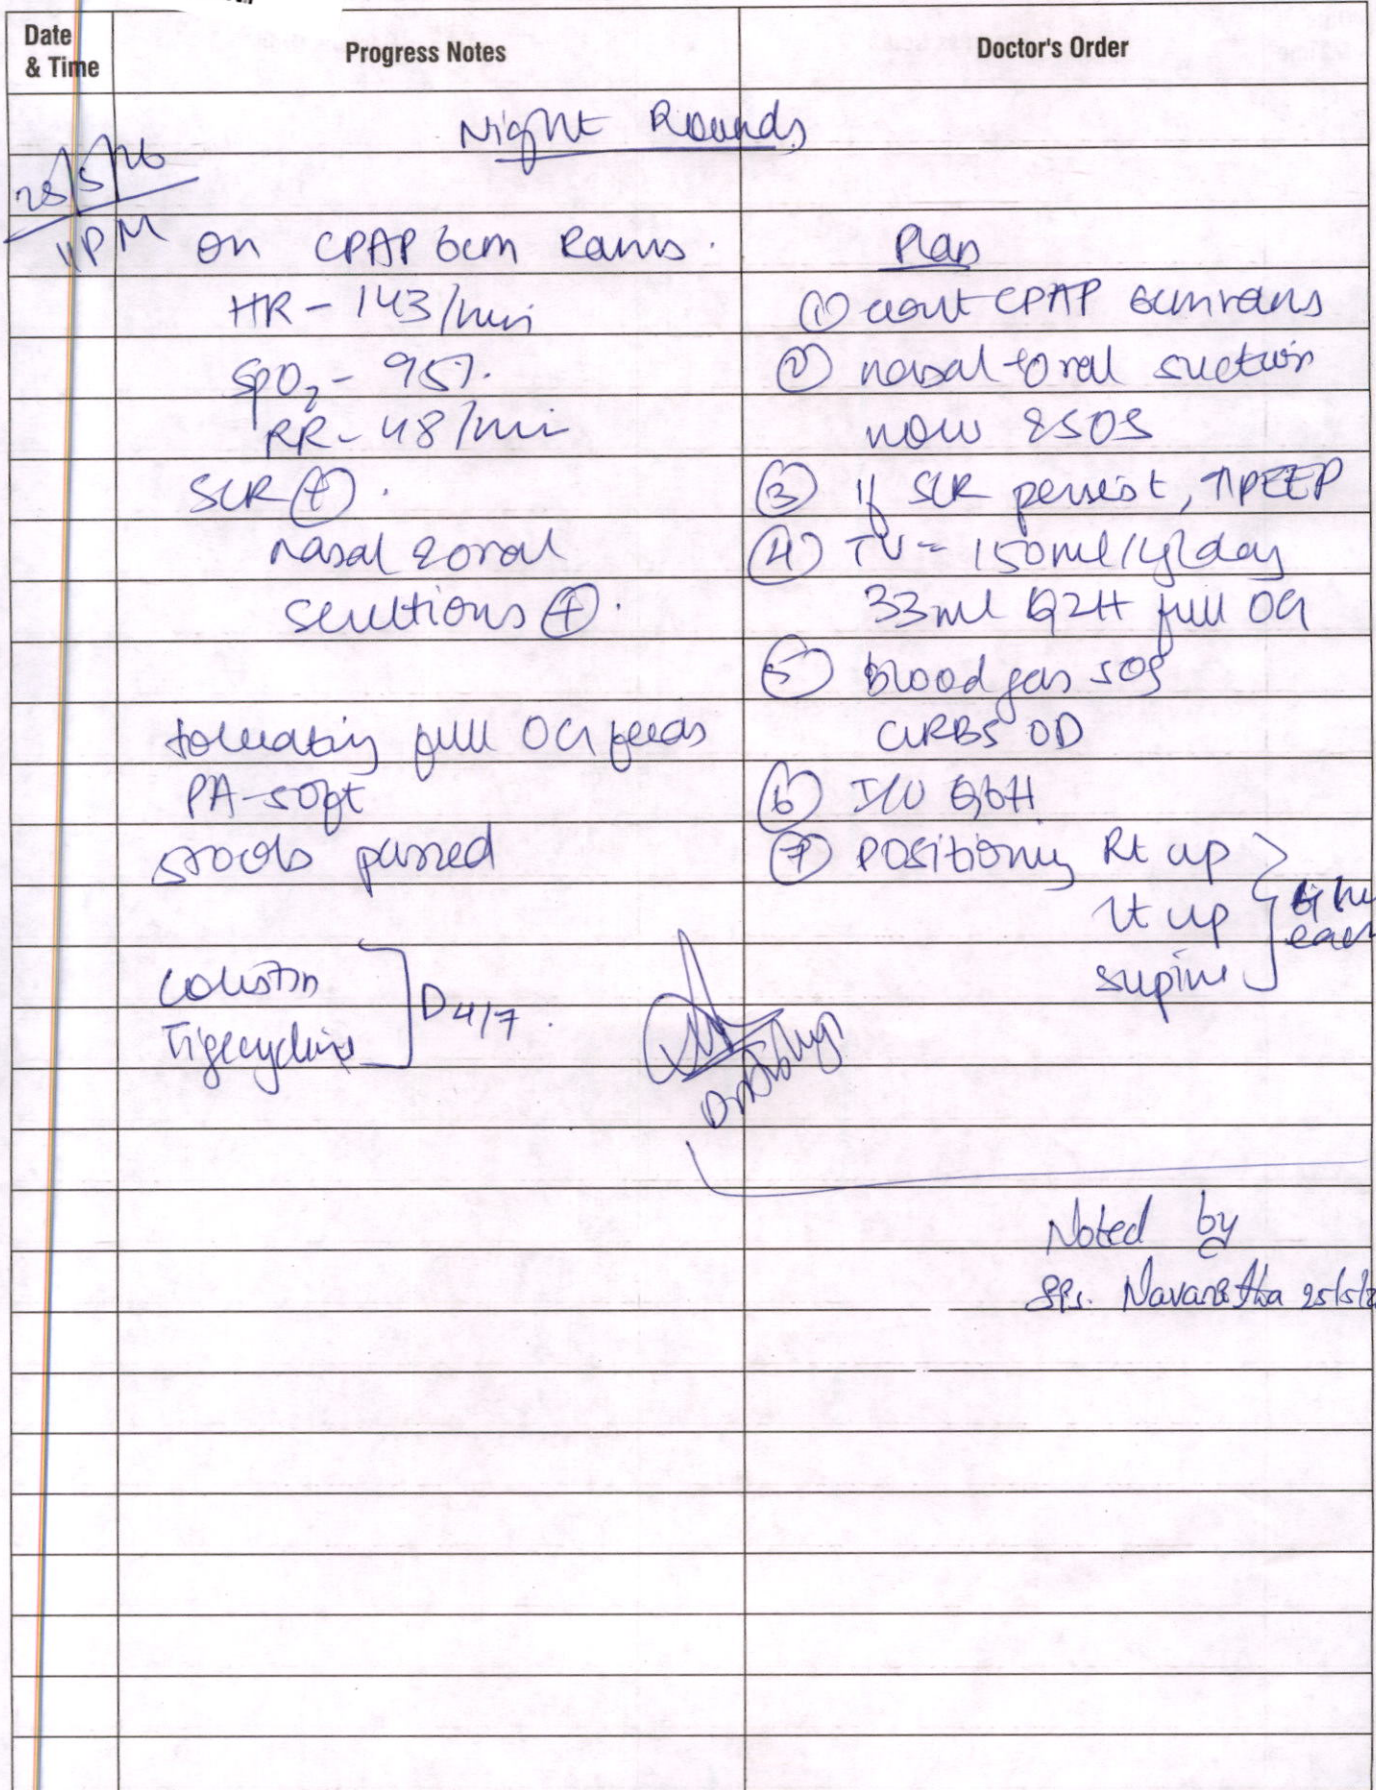 Date & Time
Progress Notes
Doctor's Order
Night Rounds
25/5/26
11PM
On CPAP 6cm Rams.
HR - 143/min
SpO2 - 95%.
RR - 48/min
SCR (+).
nasal & oral
secretions (+).
tolerating full OG feeds
PA - soft
stools passed
Colistin
Tigecycline
D4/7.
Plan
(1) cont CPAP 6cm rams
(2) nasal + oral suction
now & SOS
(3) if SCR persist, ↑PEEP
(4) TV - 150ml/kg/day
33ml Q2H full OG
(5) blood gas SOS
GRBS OD
(6) I/O Q6H
(7) Positioning Rt up
Lt up
supine
each
Noted by
Navaneetha 25/5/2